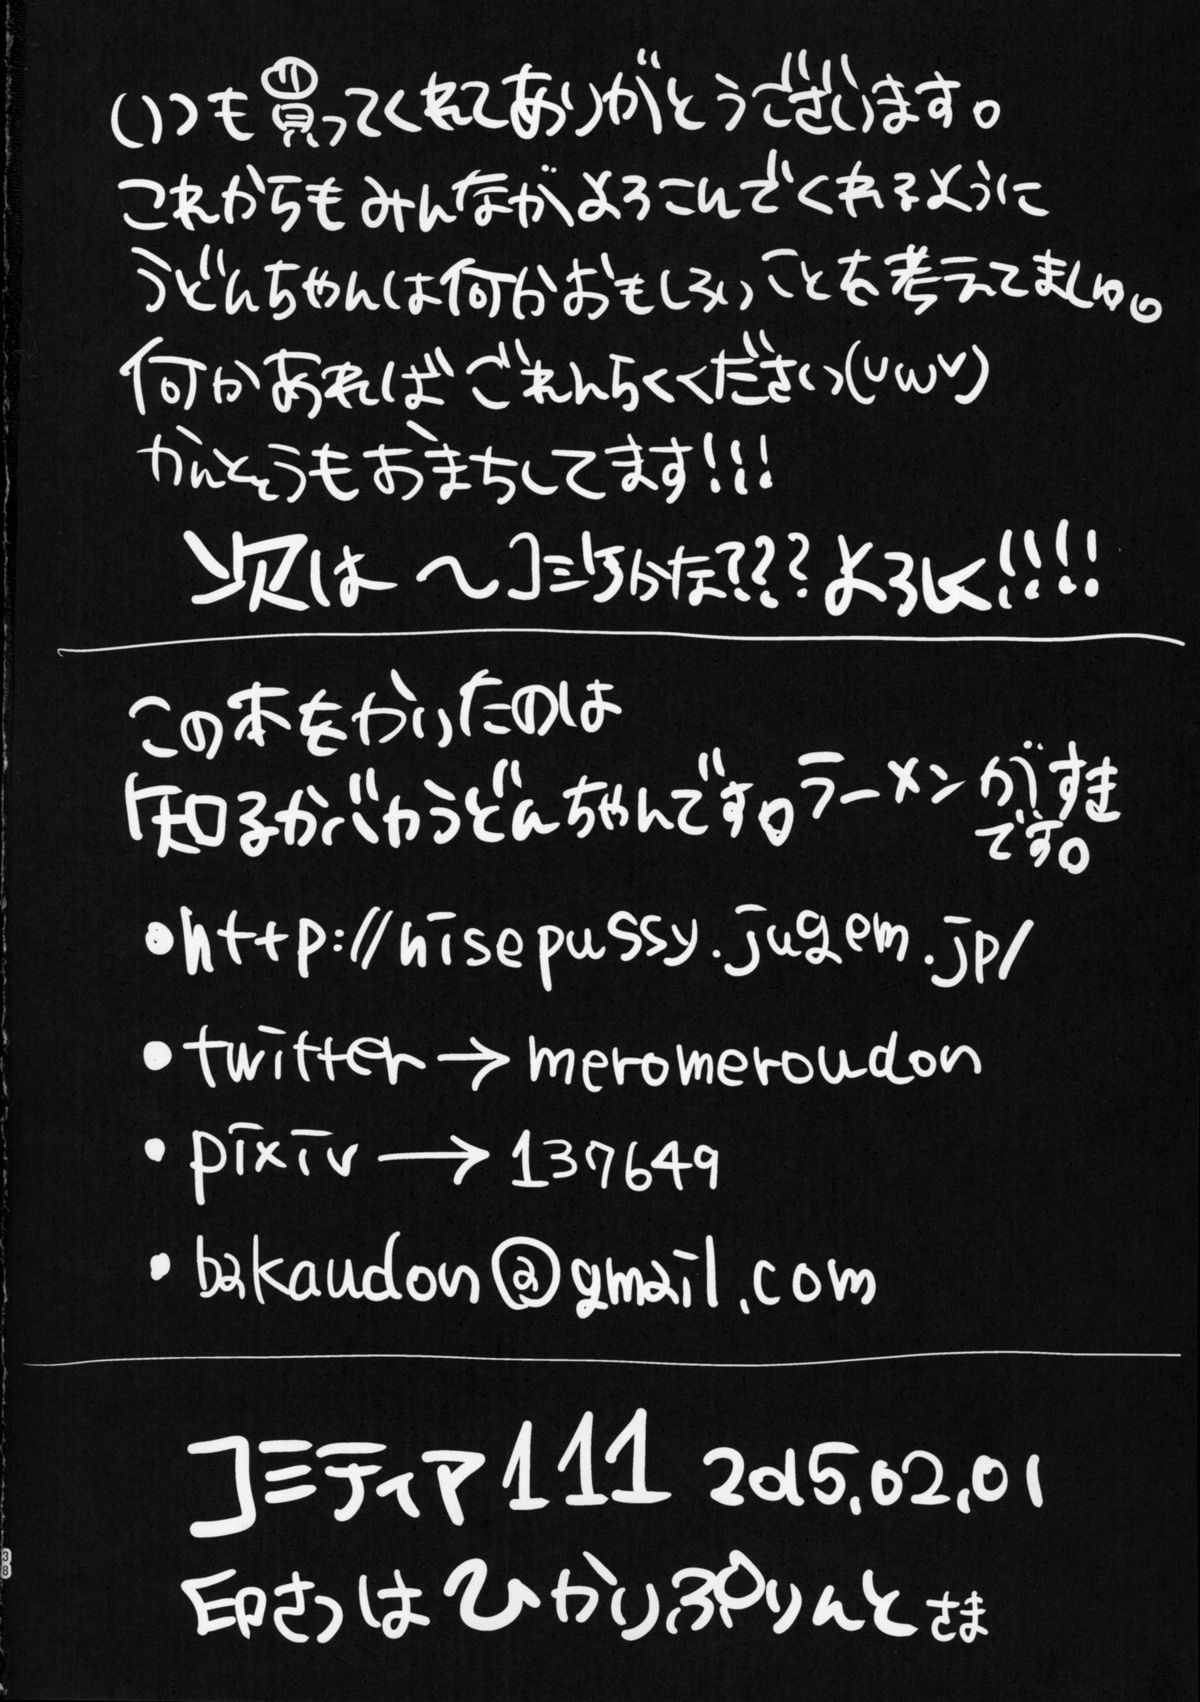 いつも買ってくれてありがとうございます。
これからもみんながよろこんでくれるように
うどんちゃんは何かおもしろいことを考えてましゅ。
何かあればごれんらくください(vωv)
かんそうもおまちしてます!!!
次は〜コミケかな???よろしく!!!!
この本をかいたのは
知るかバカうどんちゃんです。ラーメンがすき
です。
•http://nisepussy.jugem.jp/
•twitter→meromeroudon
•pixiv→137649
•bakaudon@gmail.com
コミティア111 2015.02.01
印さつはひかりぷりんとさま
38